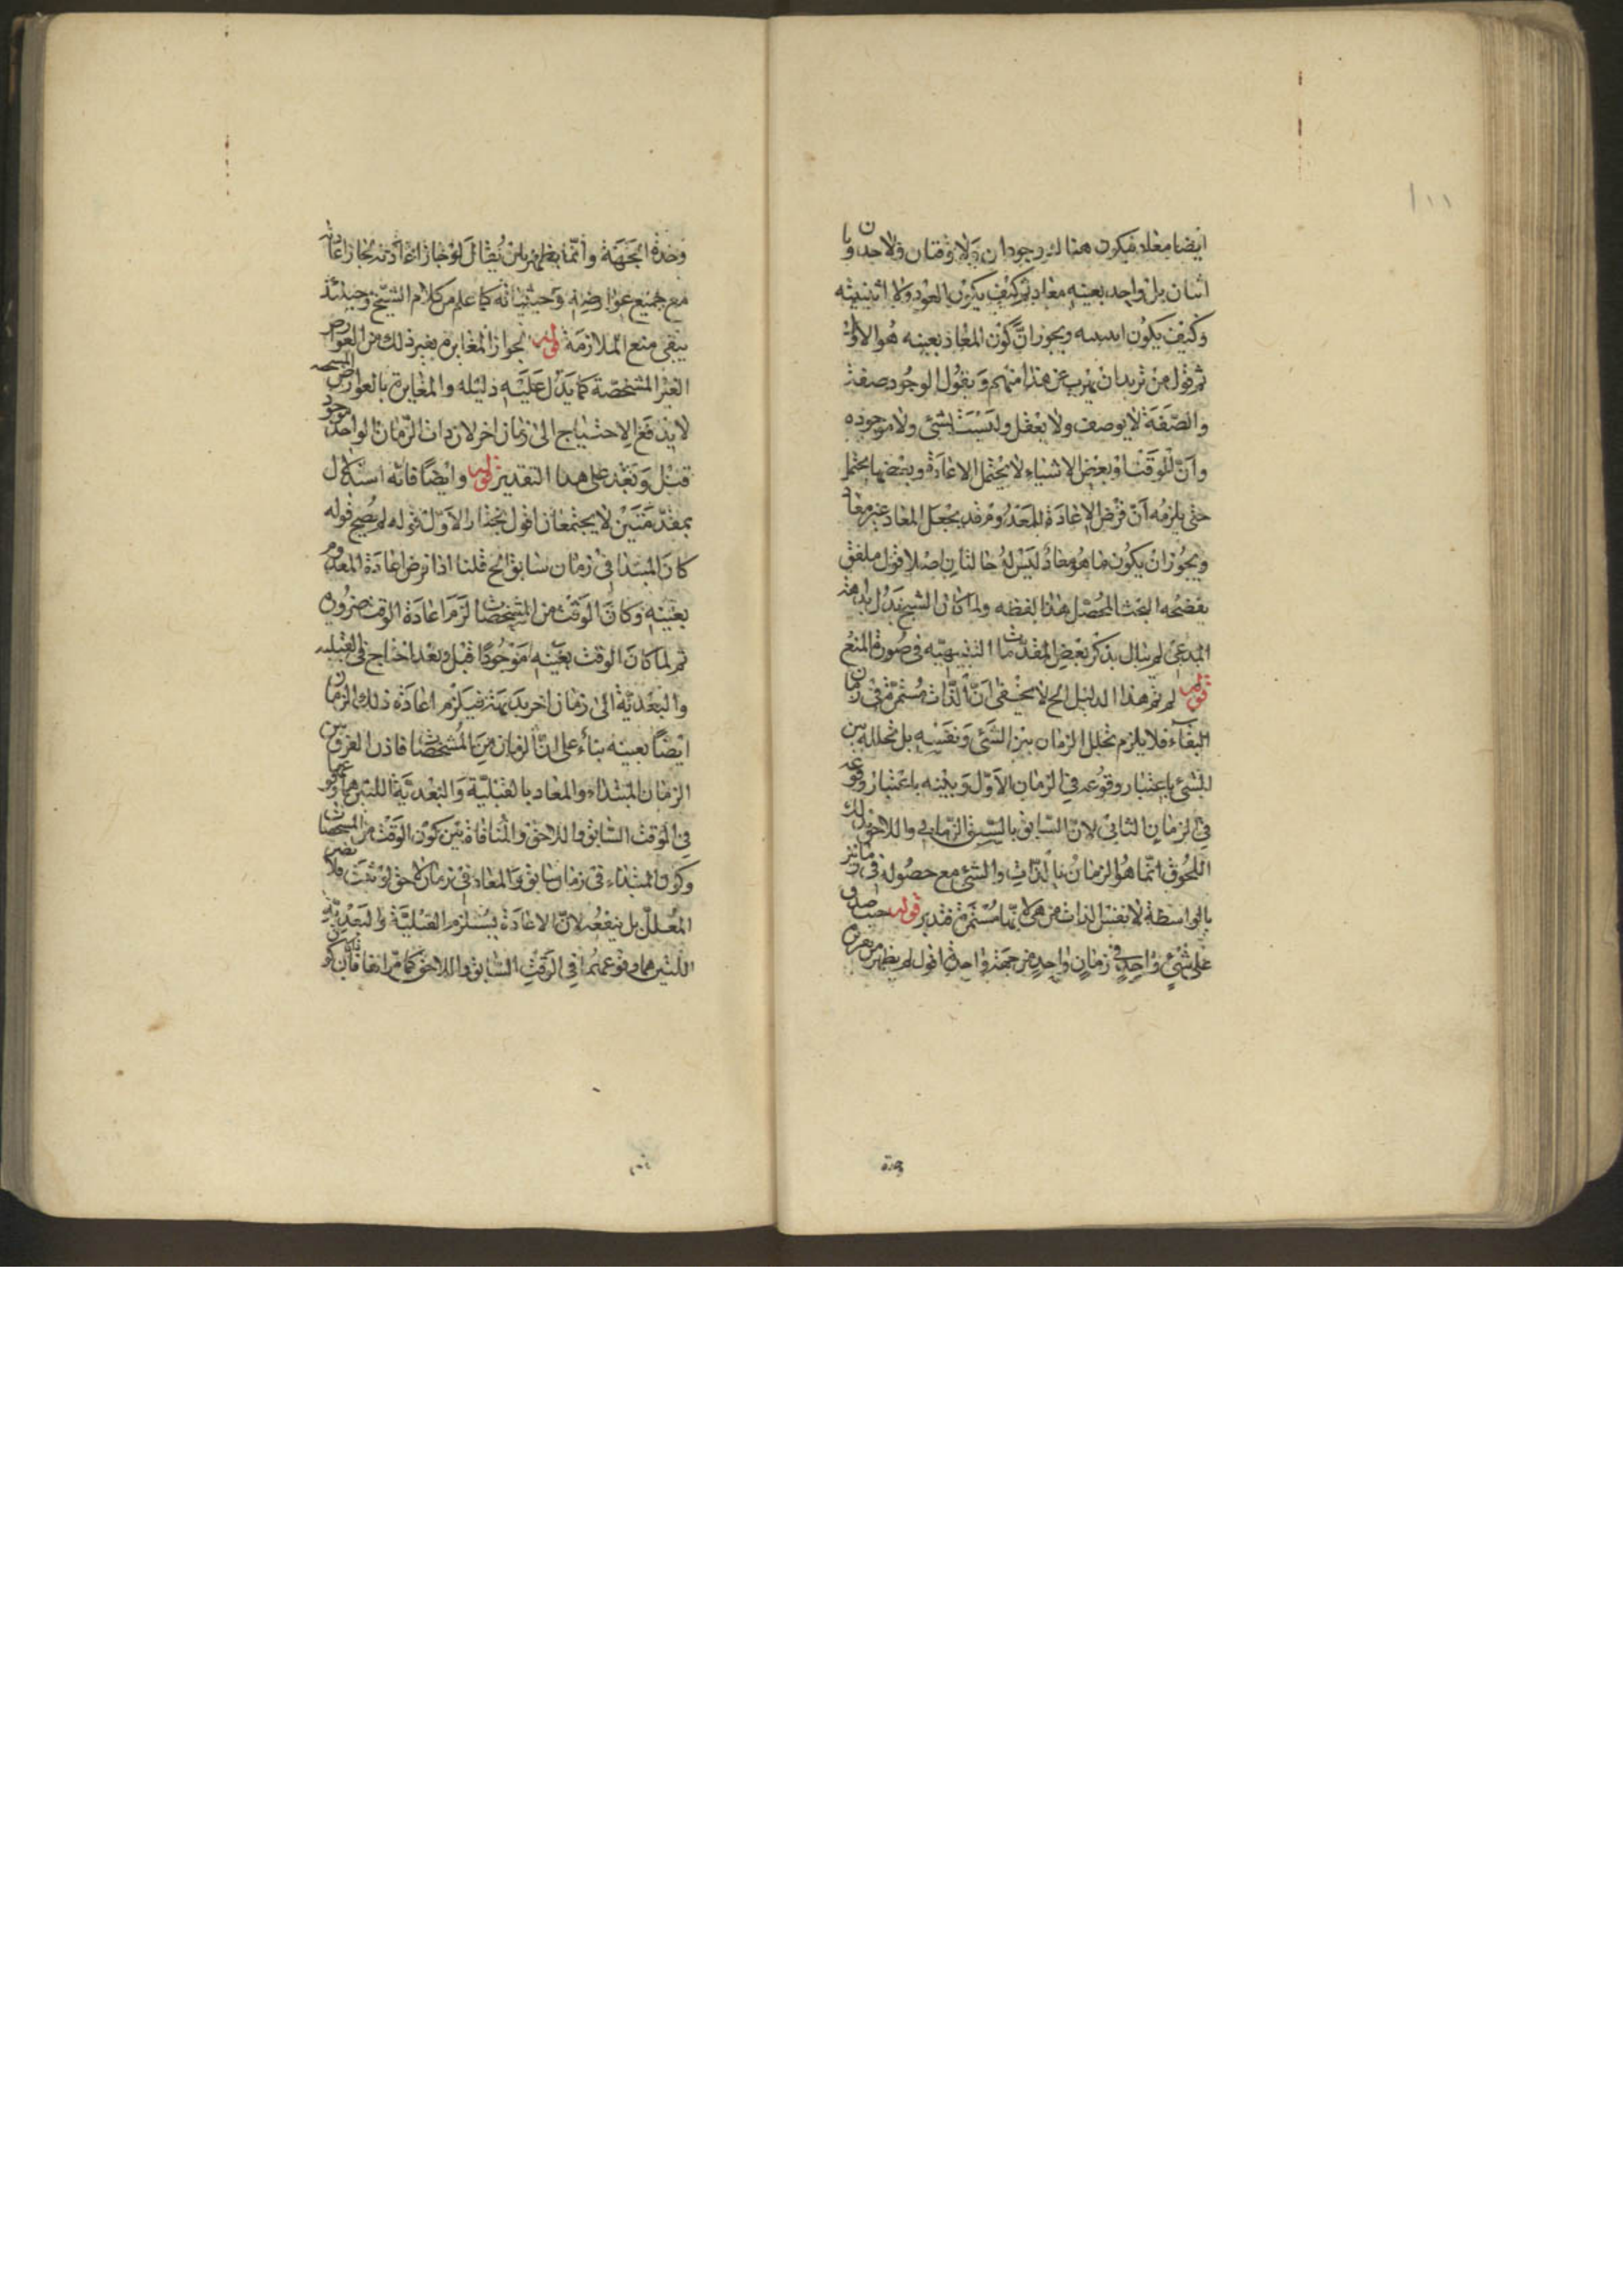 ١٠١
ايضا معاد فيكون هناك وجودان ولا وقتان ولا حدوثان
اثنان بل واحد بعينه معاد ثم كيف يكون العود ولا اثنينيه
وكيف يكون اثنينيه ويجوز ان كون المعاد بعينه هو الاول
ثم قول من يريدان يهرب عن هذا منهم ويقول الوجود صفة
والصفة لا يوصف ولا يعقل وليست شئ ولا موجوده
وان للوقت او بعض الاشياء لا يحتمل الاعادة وبعضها يحتمل
حتى يلزمه ان فرض الاعادة للمعدوم قد يجعل المعاد غير معاد
ويجوز ان يكون ما هو معاد ليس له حالتان اصلا قول ملفق
يفضحه البحث المحصل هذا لفظه ولما كان الشيخ بداهة
المدعى لم يبال بذكر بعض المقدمات التنبيهيه فى صورة المنع
قوله لم يتم هذا الدليل الح لا يخفى ان الذات مستمرة فى زمان
البقاء فلا يلزم تخلل الزمان بين الشئ ونفسه بل تخلله بين
الشئ باعتبار وقوعه فى الزمان الاول وبينه باعتبار وقوعه
فى الزمان الثانى لان السابق بالسبق الزمانى واللاحق بذلك
اللحوق انما هو الزمان بالذات والشئ مع حصوله فى زمانين
بالواسطة لا نفس الذات من هى لانها مستمرة فتدبر قوله حيث صدق
على شئ واحد فى زمان واحد من جهة واحدة اقول لم يظهر من تعرض
وحدة
وحدة الجهة وانما يظهر بان يقال لو جاز اعادته لجاز اعادته
مع جميع عوارضه وحيثياته كما علم من كلام الشيخ وحينئذ
يبقى منع الملازمة قوله لجواز المغايرة بغير ذلك من العوارض
الغير المشخصة كما يدل عليه دليله والمغايرة بالعوارض
لا يدفع الاحتياج الى زمان اخر لان ذات الزمان الواحد موجود
قبل وبعد على هذا التقدير قوله وايضا فانه استدلال
بمقدمتين لا يجتمعان اقول نختار الاول قوله لم يصح قوله
كان المبتدا فى زمان سابق الح قلنا اذا فرض اعادة المعدوم
بعينه وكان الوقت من المشخصات لزم اعادة الوقت ضرورة
ثم لما كان الوقت بعينه موجودا قبل وبعد احتاج فى القبليه
والبعدية الى زمان اخر بديهة فيلزم اعادة ذلك الزمان
ايضا بعينه بناء على ان الزمان من المشخصات فاذن الفرق بين
الزمان المبتداء والمعاد بالقبلية والبعدية اللتين هما وقوعهما
فى الوقت السابق واللاحق والمنافاة بين كون الوقت من المشخصات
وكون المبتداء فى زمان سابق والمعاد فى زمان لاحق لو تمت فلا يضر
المعلل بل ينفعه لان الاعادة يستلزم القبلية والبعدية
اللتين هما وقوعهما فى الوقت السابق واللاحق كما مر انفا فان كون